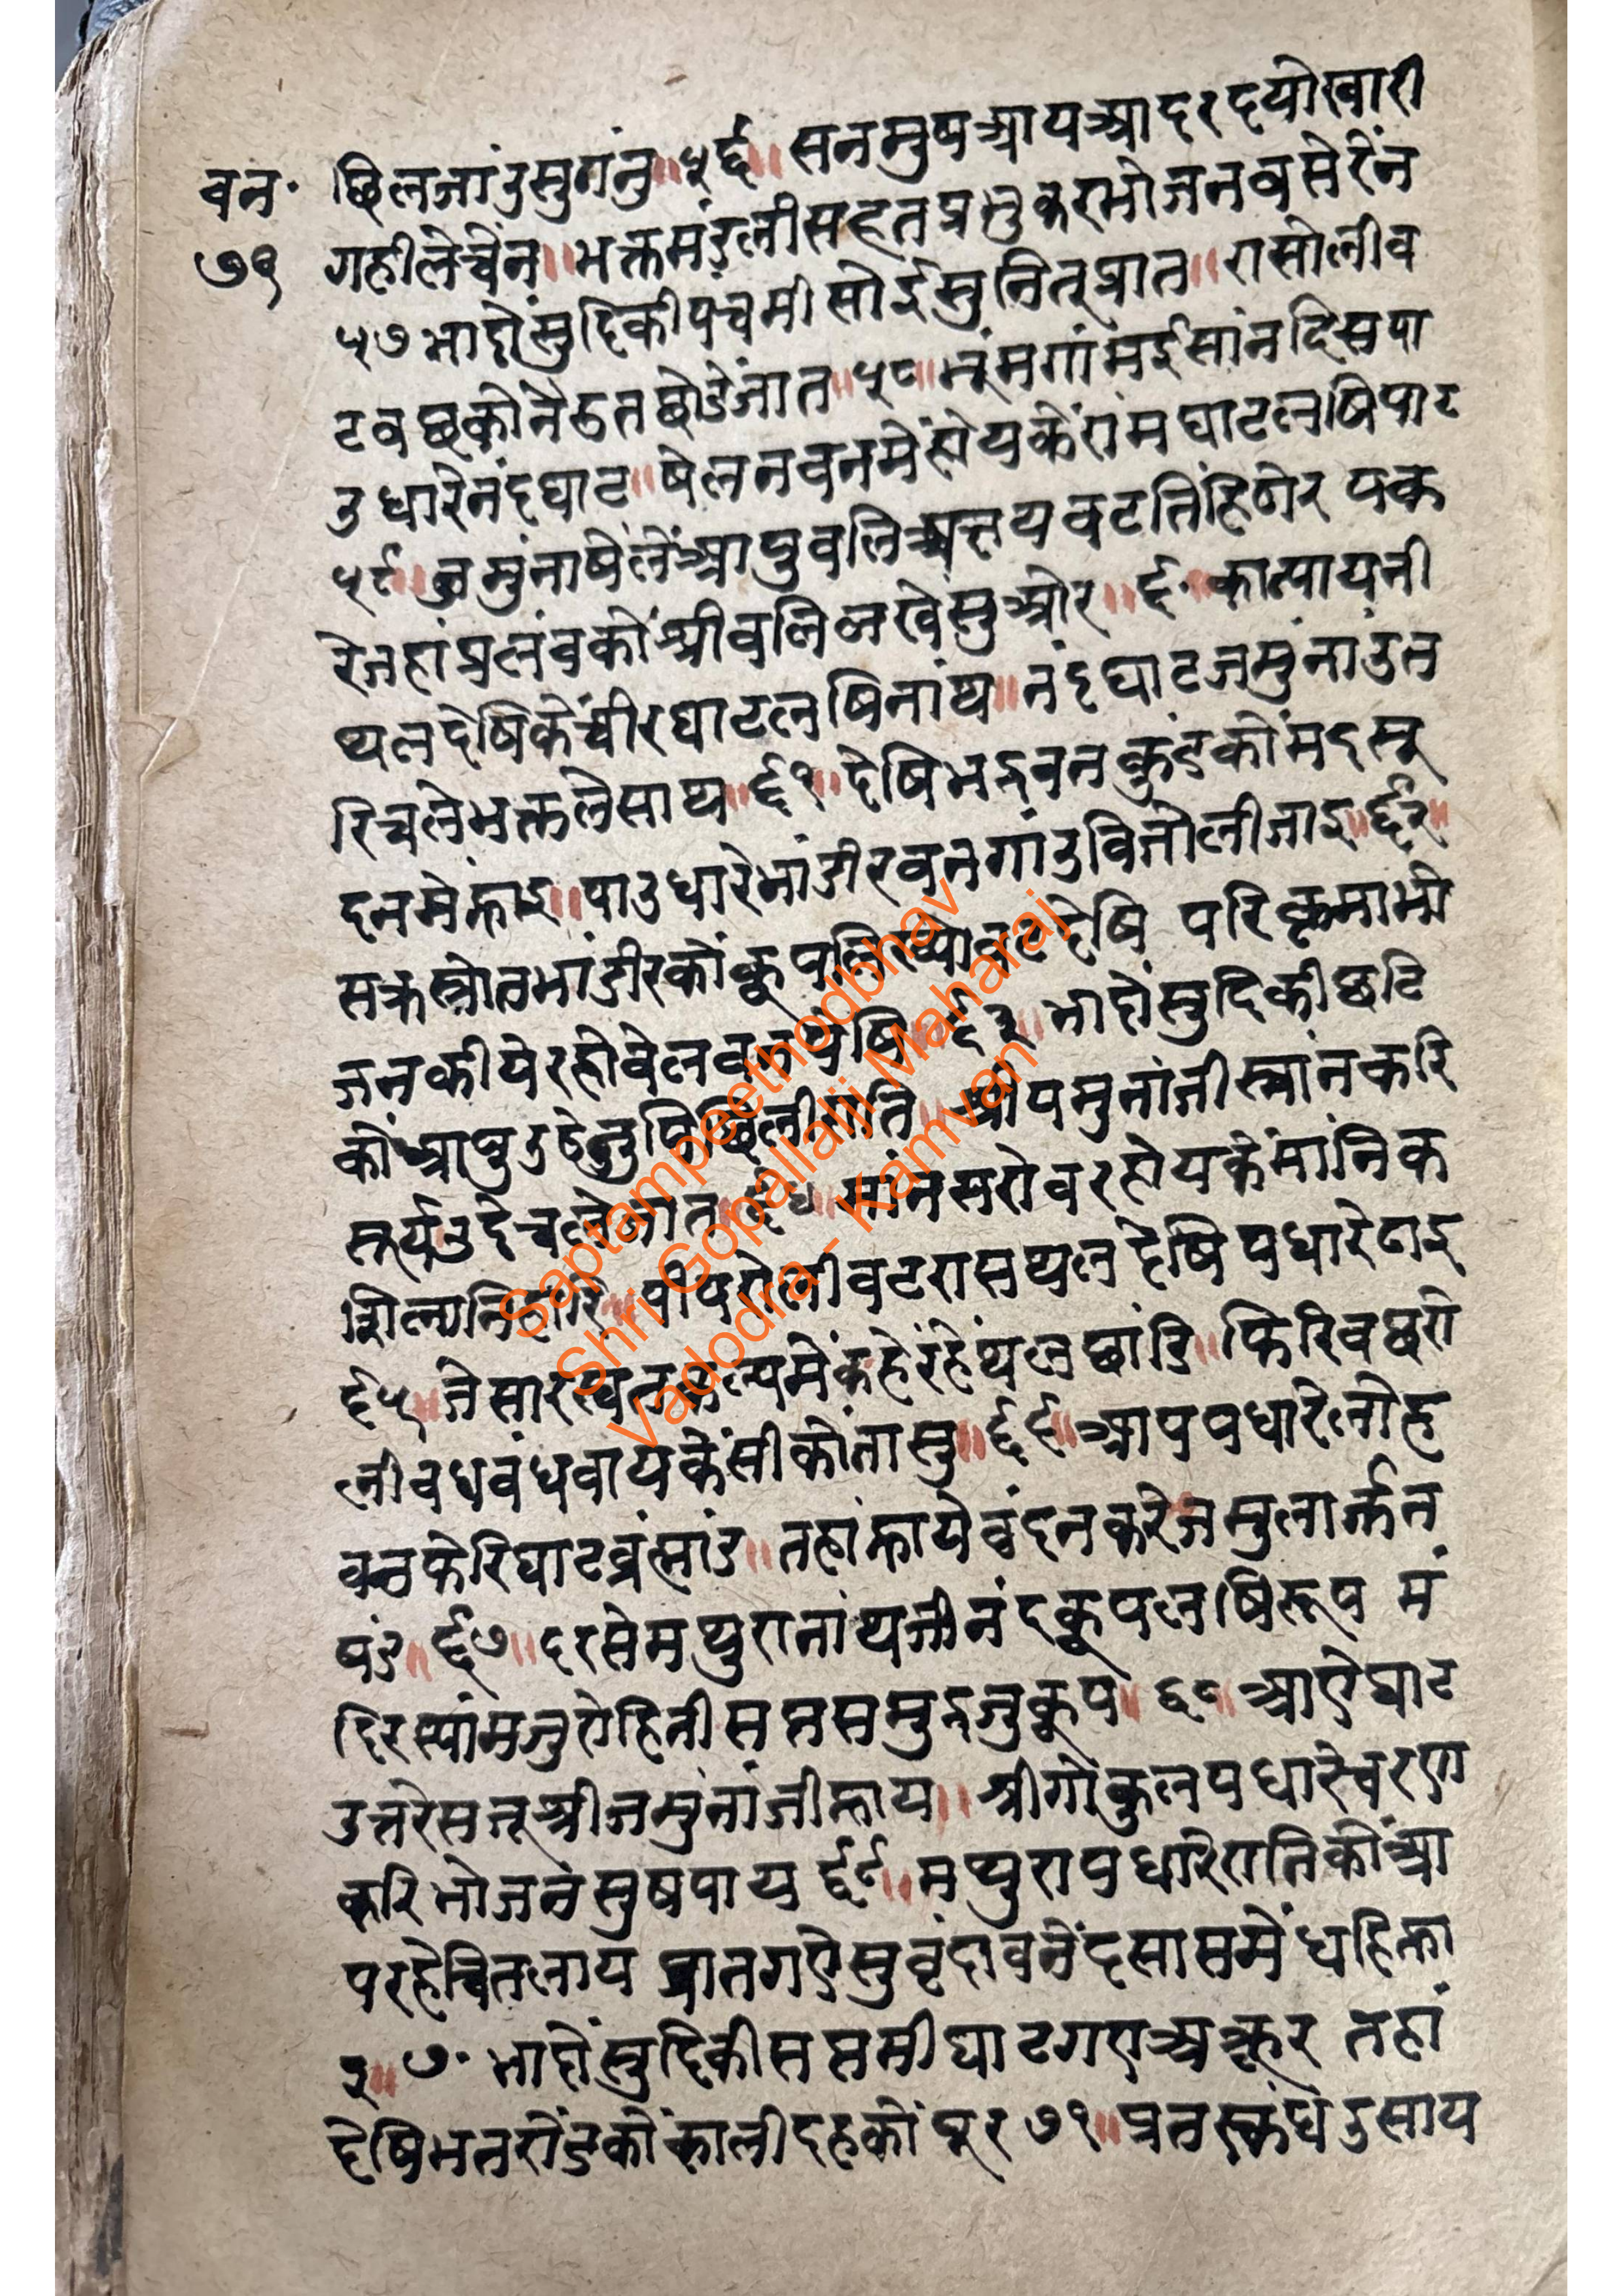 वन॰
७१
छिलजांउसुगंनु॥५६॥सनमुषआयआदरदयोखारी
गहीलेचेंन॥भक्तमंडलीसहतप्रभुकरभोजनवसेरेंन
५७भादोंसुदिकीपंचमीसोईसुनितूप्रात॥रासोलीव
टवछकोंनैठतछोडेंजात॥५८॥भूंमगांमईसांनदिसपा
उधारेनंदघाट॥षेलनवनमेंहोयकेंरांमघाटलषिपाट
५९॥जमुंनाषेलेंआपुवलिअक्षयवटतिंहिठोर पक
रेजहांप्रलंवकोंश्रीवलिलखेसुओर॥६॰कात्पायनी
थलदेषिकेंचीरघाटलषिनांथ॥नंदघाटजमुंनाउत
रिचलेभक्तलेसाथ॥६१॥देषिभद्रवनकुंडकोंमदसू
दनमेंन्हाइ॥पाउधारेभांडीरवनगांउविजौलीजाइ॥६२॥
भांडीरकोंकूप देषि परिक्रमाभो
जनकीयेरहोवेलवन भादोंसुदिकीछटि
कोंआपु श्रीयमुनांजीस्नांनकरि
सूर्यउदेचले मांनसरोवरहोयकेंमांनिक
सिलानिहारि॥पीपरोलीवटरासथलदेषिपधारेठाइ
६५॥जेसारस्वत मेंकहेरहेंथलछांडि॥फिरिवछरो
लीवधवंधवायकेंसीकोंतासु॥६६॥आपपधारेलोह
वनफेरिघाटव्रंह्मांड॥तहांन्हायेवंदनकरेजमुलार्जन
षंड॥६७॥दरसेमथुरानांथजीनंदकूपलषिरूप मं
दिरस्यांमजुरोहिनीसप्तसमुद्रजुकूप॥६८॥आऐघाट
उत्तरेसजूश्रीजमुनांजीन्हाय॥श्रीगोकुलपधारेचरण
करिभोजनंसुषपाय ६९॥मथुरापधारेरातिकोंआ
परहेचितलाय प्रातगऐसुवृंदावनेंदसासमेंधहिन्हा
इ॥७॰भादोंसुदिकीसप्तमीघाटगएअक्रूर तहां
देषिभतरोंडकोंकालीदहकोंघूर७१॥प्रतस्कंधउसाय
Saptampeethodbhav
Shri Gopallalji Maharaj
Vadodra - Kamvan